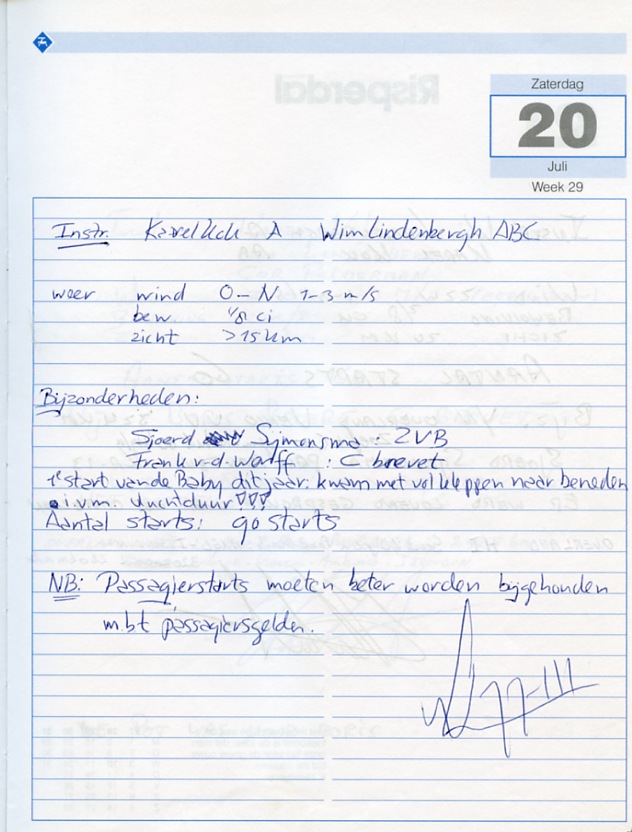 Risperdal
Zaterdag
20
Juli
Week 29
Instr. Karel Uch A Wim Lindenbergh ABC
weer wind O-N 1-3 m/s
bew. 1/8 ci
zicht >15 km
Bijzonderheden:
Sjoerd Sijmonsma: ZVB
Frank v.d. Werff: C brevet
1e start van de Baby dit jaar: kwam met vol kleppen naar beneden
i.v.m. vluchtduur!!!
Aantal starts: 90 starts
NB: Passagierstarts moeten beter worden bijgehouden
m.b.t passagiersgelden.